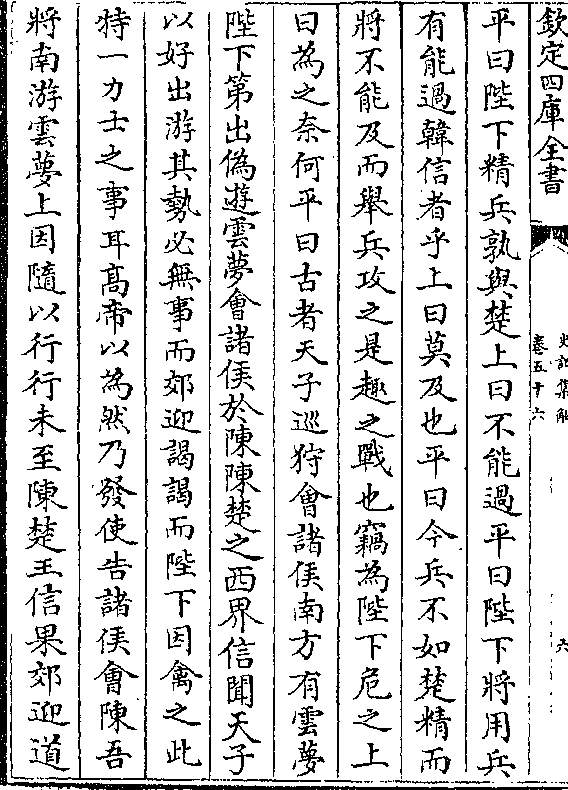 欽定四庫全書
史記集解
卷五十六
六
平曰陛下精兵孰與楚上曰不能過平曰陛下將用兵
有能過韓信者乎上曰莫及也平曰今兵不如楚精而
將不能及而舉兵攻之是趣之戰也竊為陛下危之上
曰為之奈何平曰古者天子巡狩會諸侯南方有雲夢
陛下第出偽遊雲夢會諸侯於陳陳楚之西界信聞天子
以好出游其勢必無事而郊迎謁謁而陛下因禽之此
特一力士之事耳高帝以為然乃發使告諸侯會陳吾
將南游雲夢上因隨以行行未至陳楚王信果郊迎道